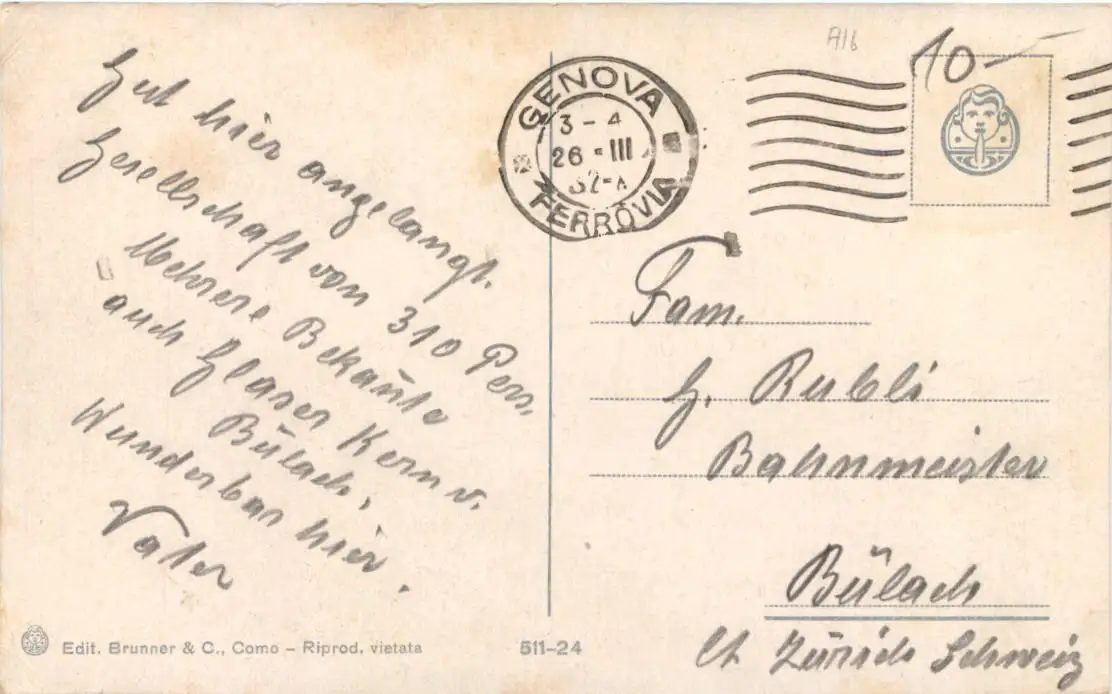 Gut hier angelangt.
Gesellschaft von 310 Pers.
Mehrere Bekannte
auch Glaser Kern v.
Bülach,
Wunderbar hier.
Vater
Edit. Brunner & C., Como – Riprod. vietata
511-24
A16
10-
GENOVA
3-4
26-III
32-X
FERROVIA
Fam.
G. Rubli
Bahnmeister
Bülach
Ct Zürich Schweiz